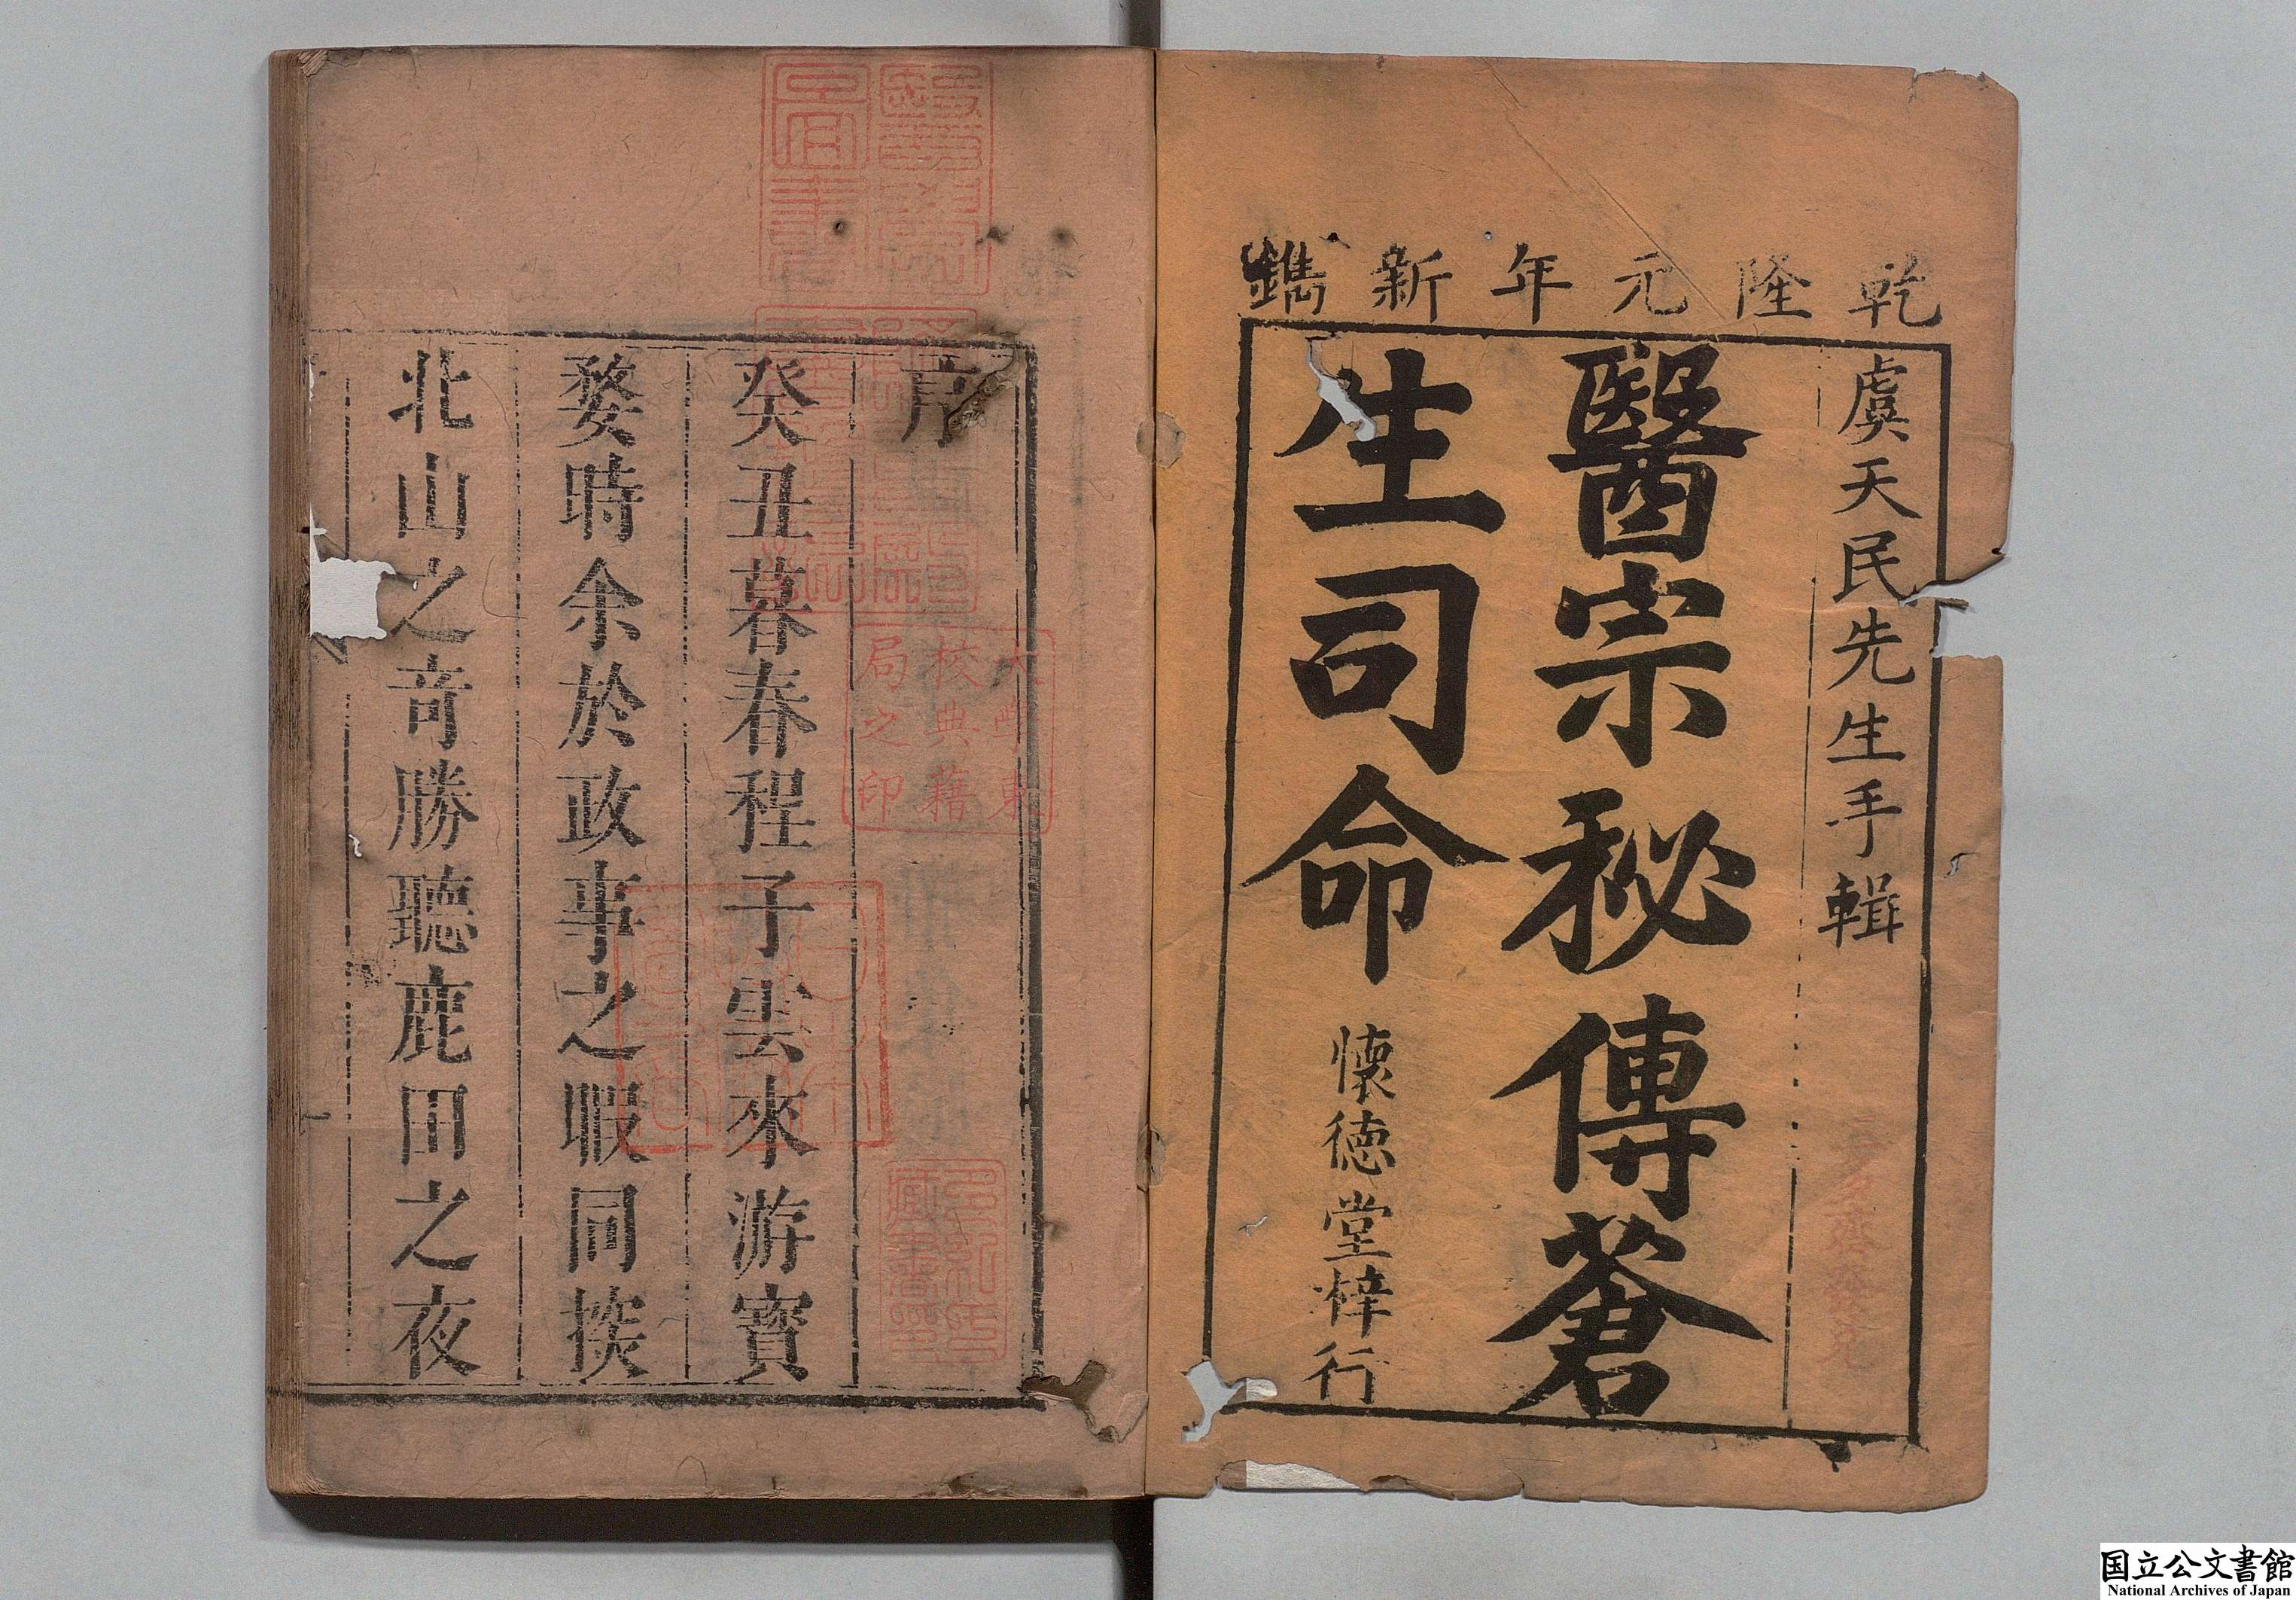 乾隆元年新鐫
虞天民先生手輯
醫宗秘傳蒼
生司命
懷德堂梓行
序
癸丑暮春程子雲來游寶
婺時余於政事之暇同探
北山之奇勝聽鹿田之夜
大學東
校典籍
局之印
国立公文書館
National Archives of Japan